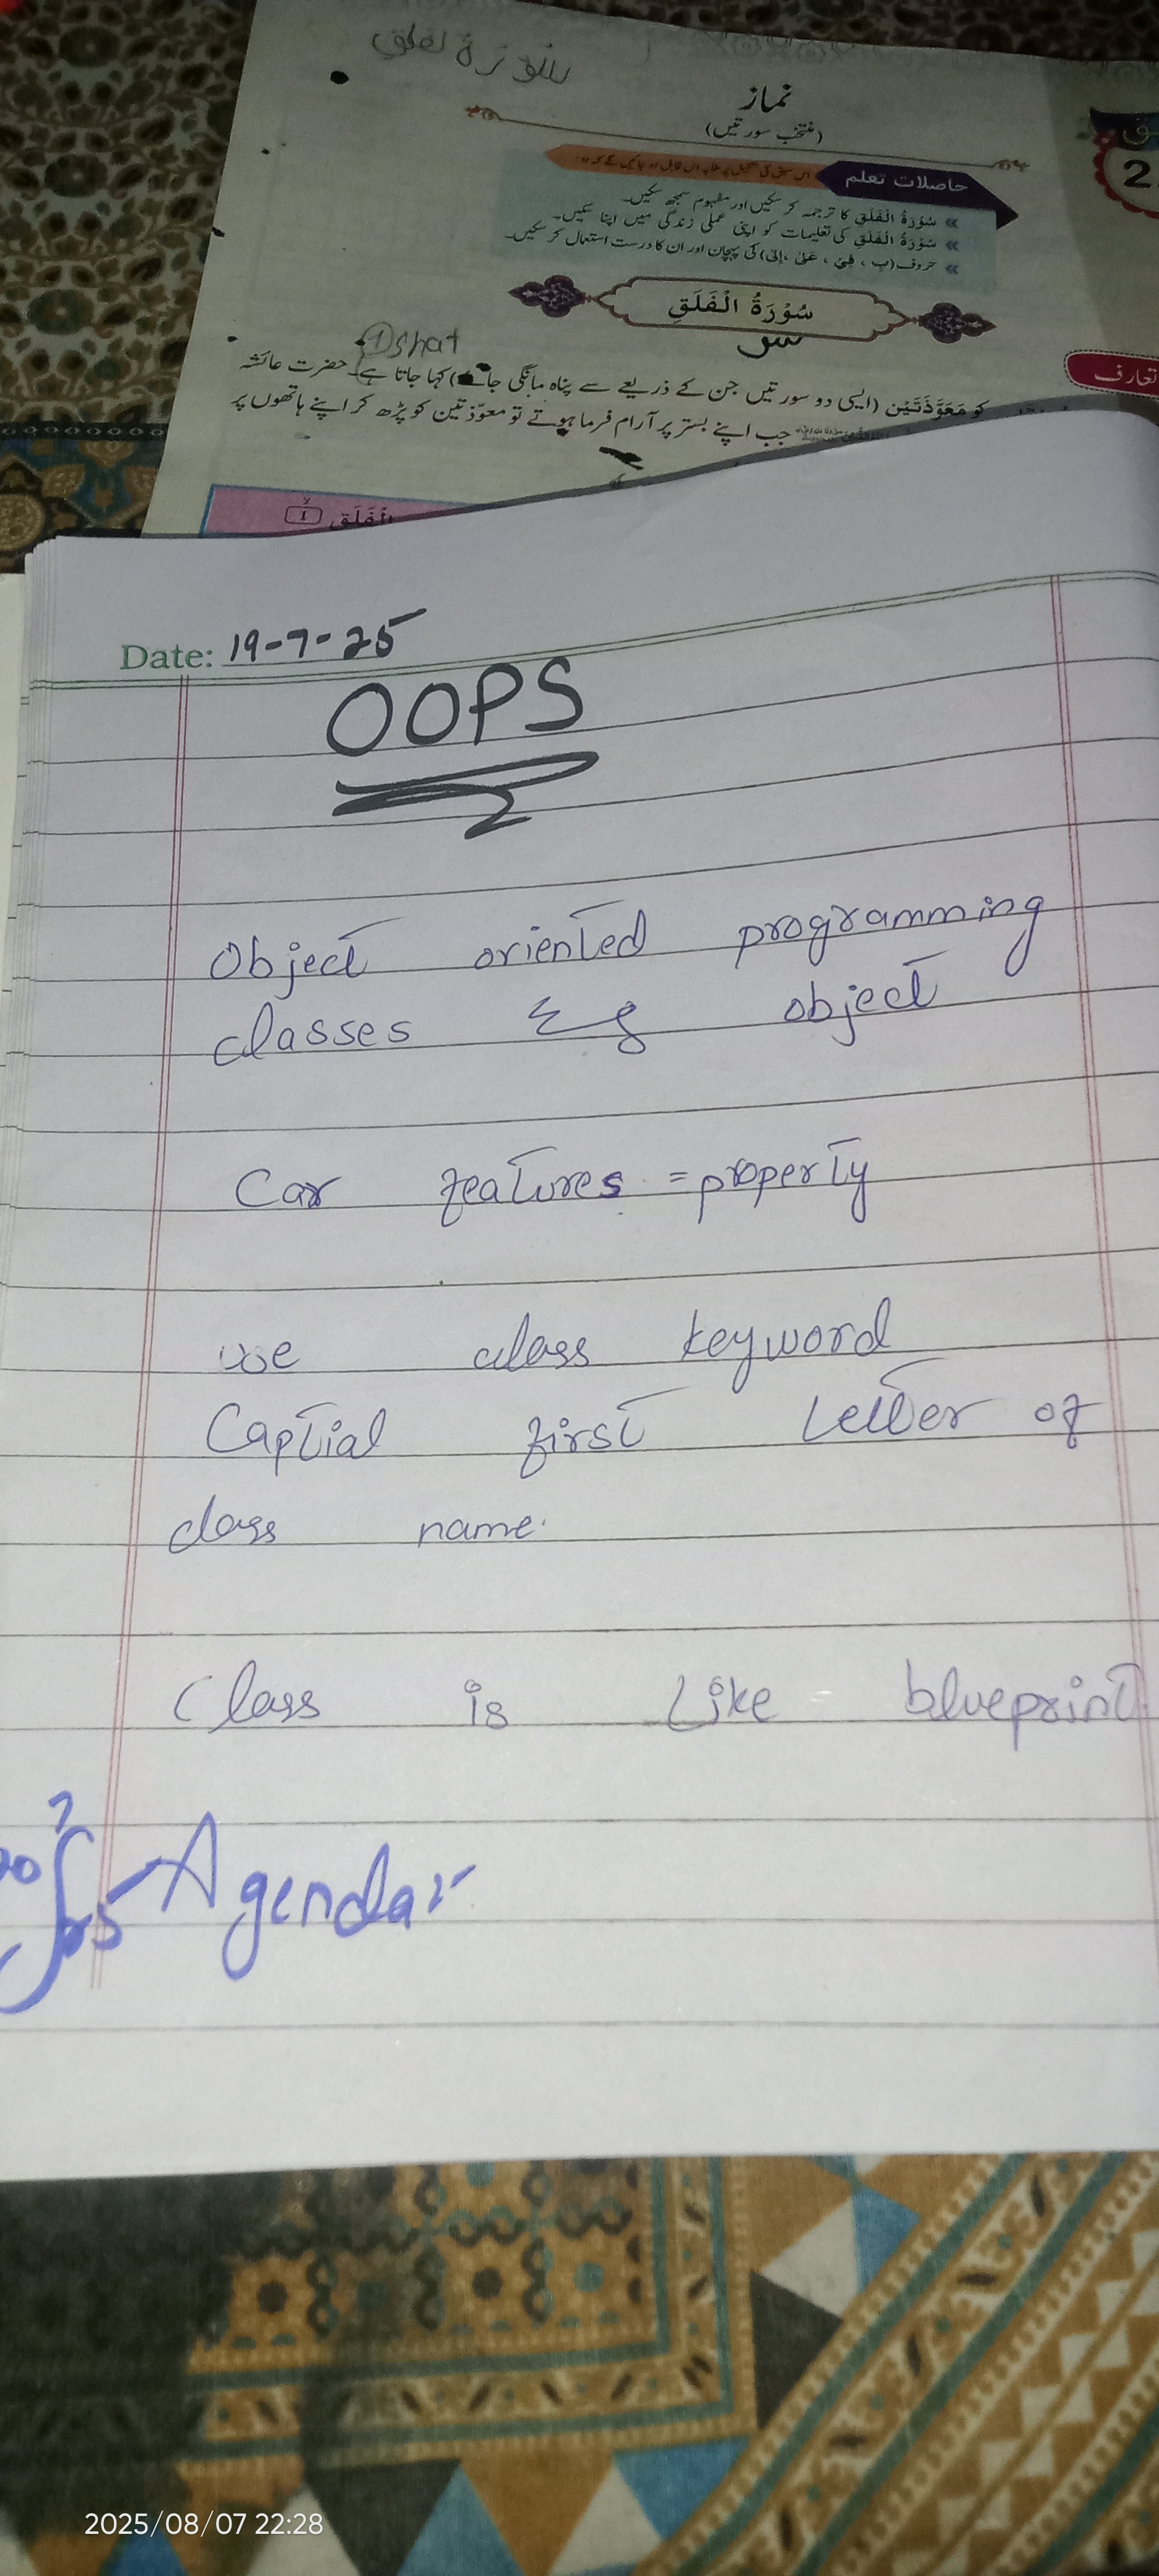 سورة لفلق
نماز
(منتخب سورتیں)
حاصلات تعلم
اس سبق کی تکمیل پر طلبہ اس قابل ہو جائیں گے کہ وہ:
سُوْرَةُ الْفَلَقِ کا ترجمہ کر سکیں اور مفہوم سمجھ سکیں۔
سُوْرَةُ الْفَلَقِ کی تعلیمات کو اپنی عملی زندگی میں اپنا سکیں۔
حروف (بِ ، فِيْ ، عَلٰی ، اِلٰی) کی پہچان اور ان کا درست استعمال کر سکیں۔
سُوْرَةُ الْفَلَقِ
① Shat
تعارف
کو مَعَوَّذَتَيْن (ایسی دو سورتیں جن کے ذریعے سے پناہ مانگی جائے) کہا جاتا ہے حضرت عائشہ
جب اپنے بستر پر آرام فرما ہوتے تو معوّذتین کو پڑھ کر اپنے ہاتھوں پر
الْفَلَقِ 1
2
Date: 19-7-25
OOPS
Object oriented programming
classes & object
Car features = property
use class keyword
Captial first Letter of
class name.
Class is Like blueprint
7
25 Agendar
2025/08/07 22:28